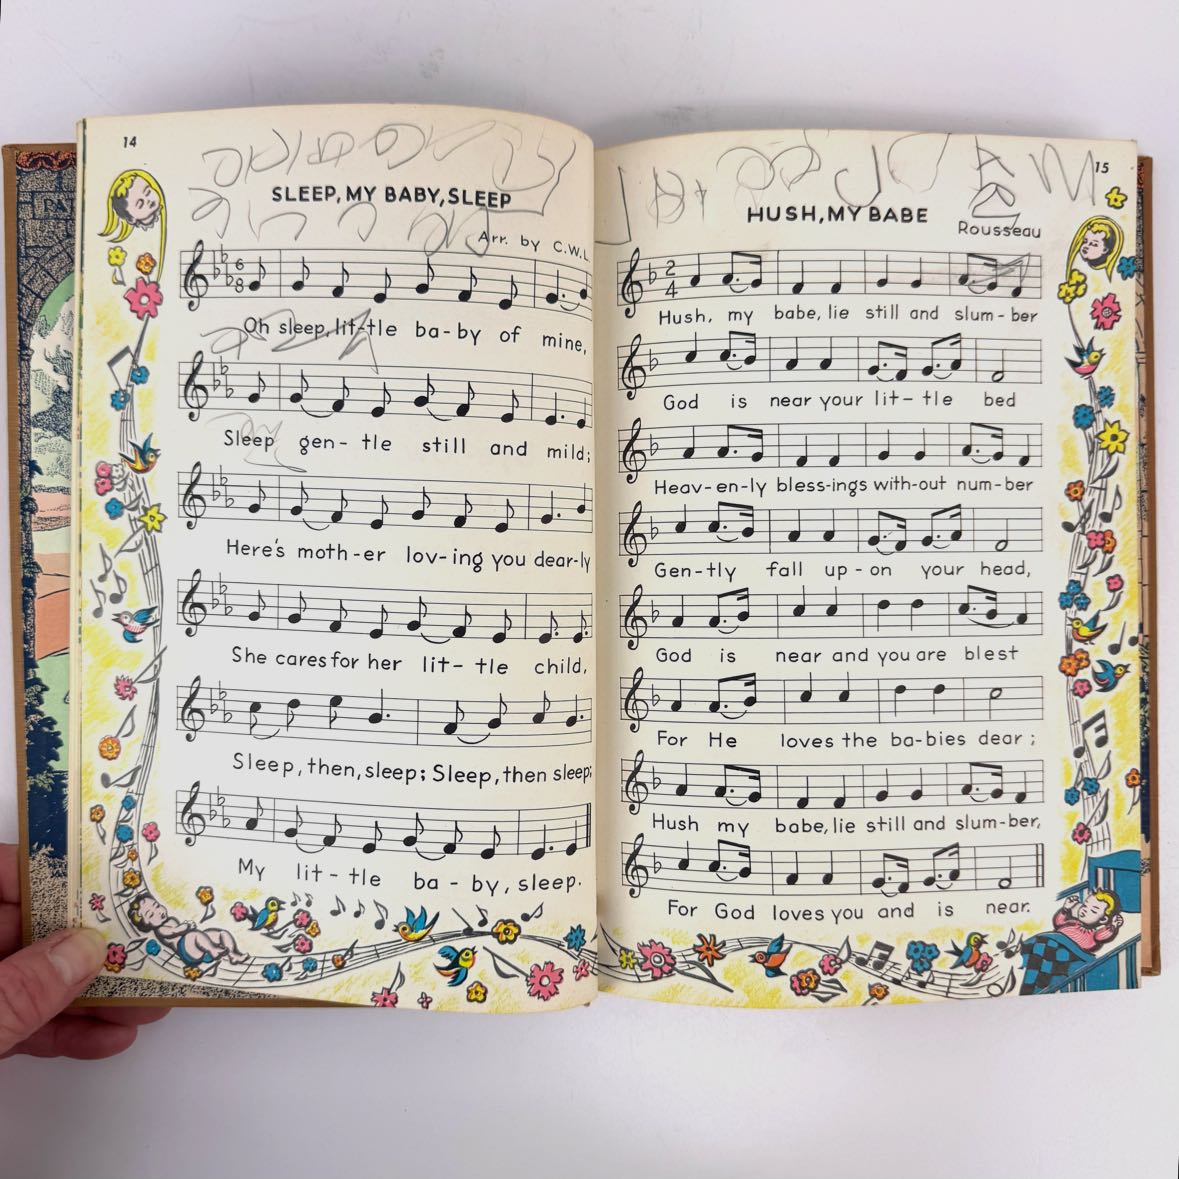 14
SLEEP, MY BABY, SLEEP
Arr. by C.W.L.
6
8
Oh sleep, lit-tle ba-by of mine,
Sleep gen-tle still and mild;
Here's moth-er lov-ing you dear-ly
She cares for her lit-tle child,
Sleep, then, sleep; Sleep, then sleep;
My lit-tle ba-by, sleep.
15
HUSH, MY BABE
Rousseau
2
4
Hush, my babe, lie still and slum-ber
God is near your lit-tle bed
Heav-en-ly bless-ings with-out num-ber
Gen-tly fall up-on your head,
God is near and you are blest
For He loves the ba-bies dear;
Hush my babe, lie still and slum-ber,
For God loves you and is near.